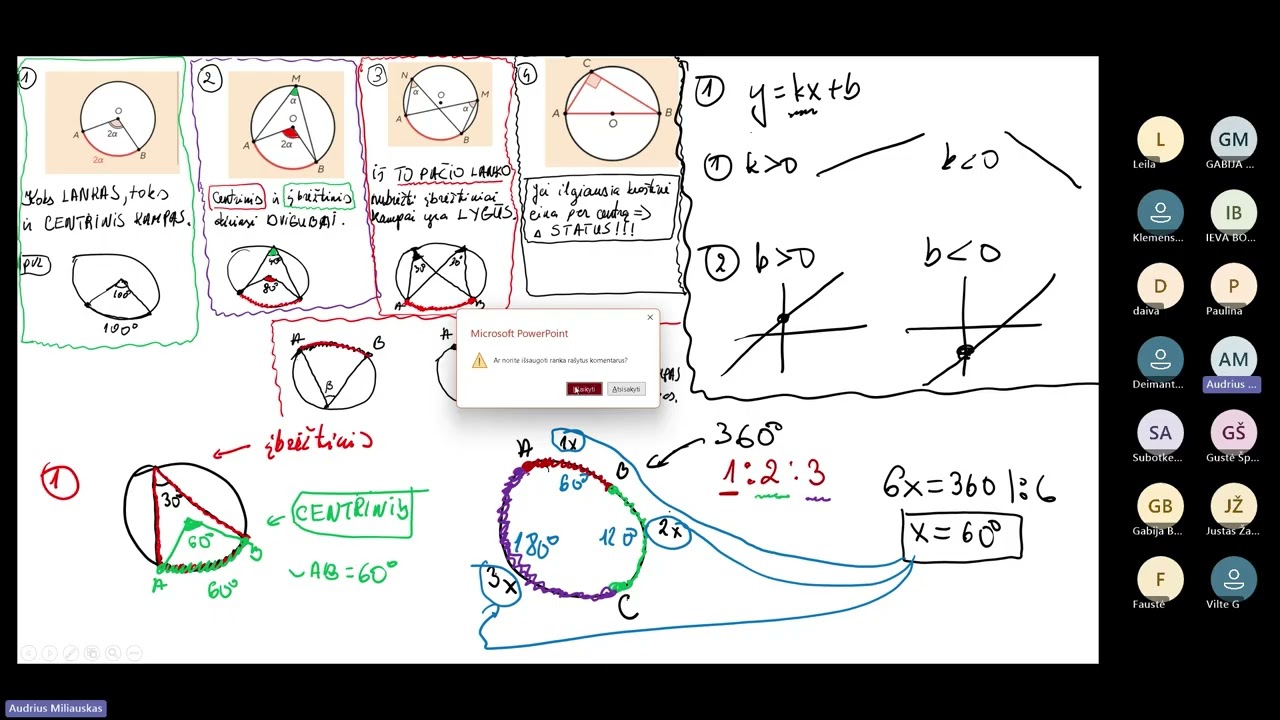 1
O
A
B
2α
2α
Koks LANKAS, toks
ir CENTRINIS KAMPAS.
pvz
100°
100°
2
M
α
O
2α
A
B
Centrinis ir įbrėžtinis
skiriasi DVIGUBAI.
40°
80°
3
N
M
α
α
O
A
B
iš TO PAČIO LANKO
nubrėžti įbrėžtiniai
kampai yra LYGŪS.
A
4
C
A
O
B
Jei ilgiausia kraštinė
eina per centrą =>
Δ STATUS!!!
1 y=kx+b
1 k>0
b<0
2 b>0
b<0
A
B
β
A
Microsoft PowerPoint
Ar norite išsaugoti ranka rašytus komentarus?
Išlaikyti
Atsisakyti
1
įbrėžtinis
30°
60°
A
B
60°
CENTRINIS
AB=60°
A
1x
B
60°
2x
120°
180°
3x
C
360°
1:2:3
6x=360 |:6
x=60°
L
Leila
GM
GABIJA ...
Klemens...
IB
IEVA BO...
D
daiva
P
Paulina
Deimant...
AM
Audrius ...
SA
Subotke...
GŠ
Gustė Šp...
GB
Gabija B...
JŽ
Justas Ža...
F
Faustė
Vilte G
Audrius Miliauskas